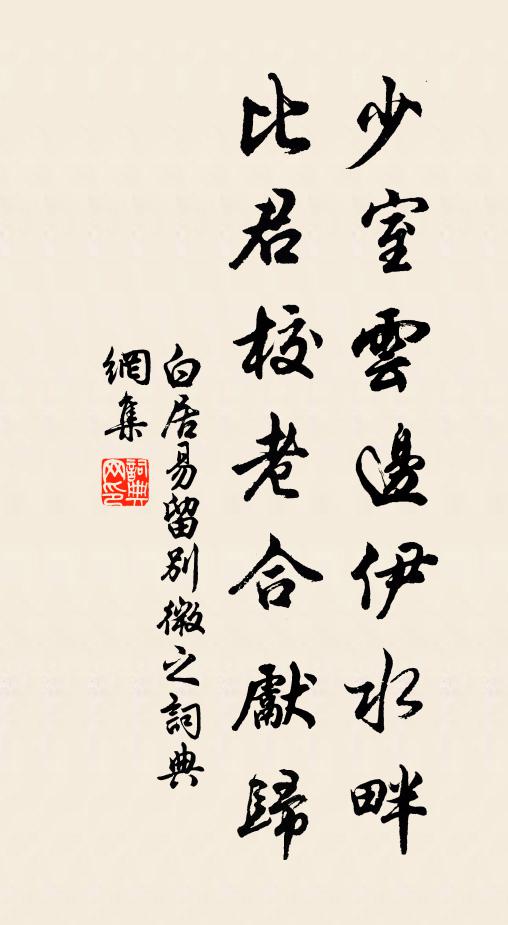 少室雲邊伊水畔
比君校老合獻歸
白居易留別微之詞典
網集
詞典
网印